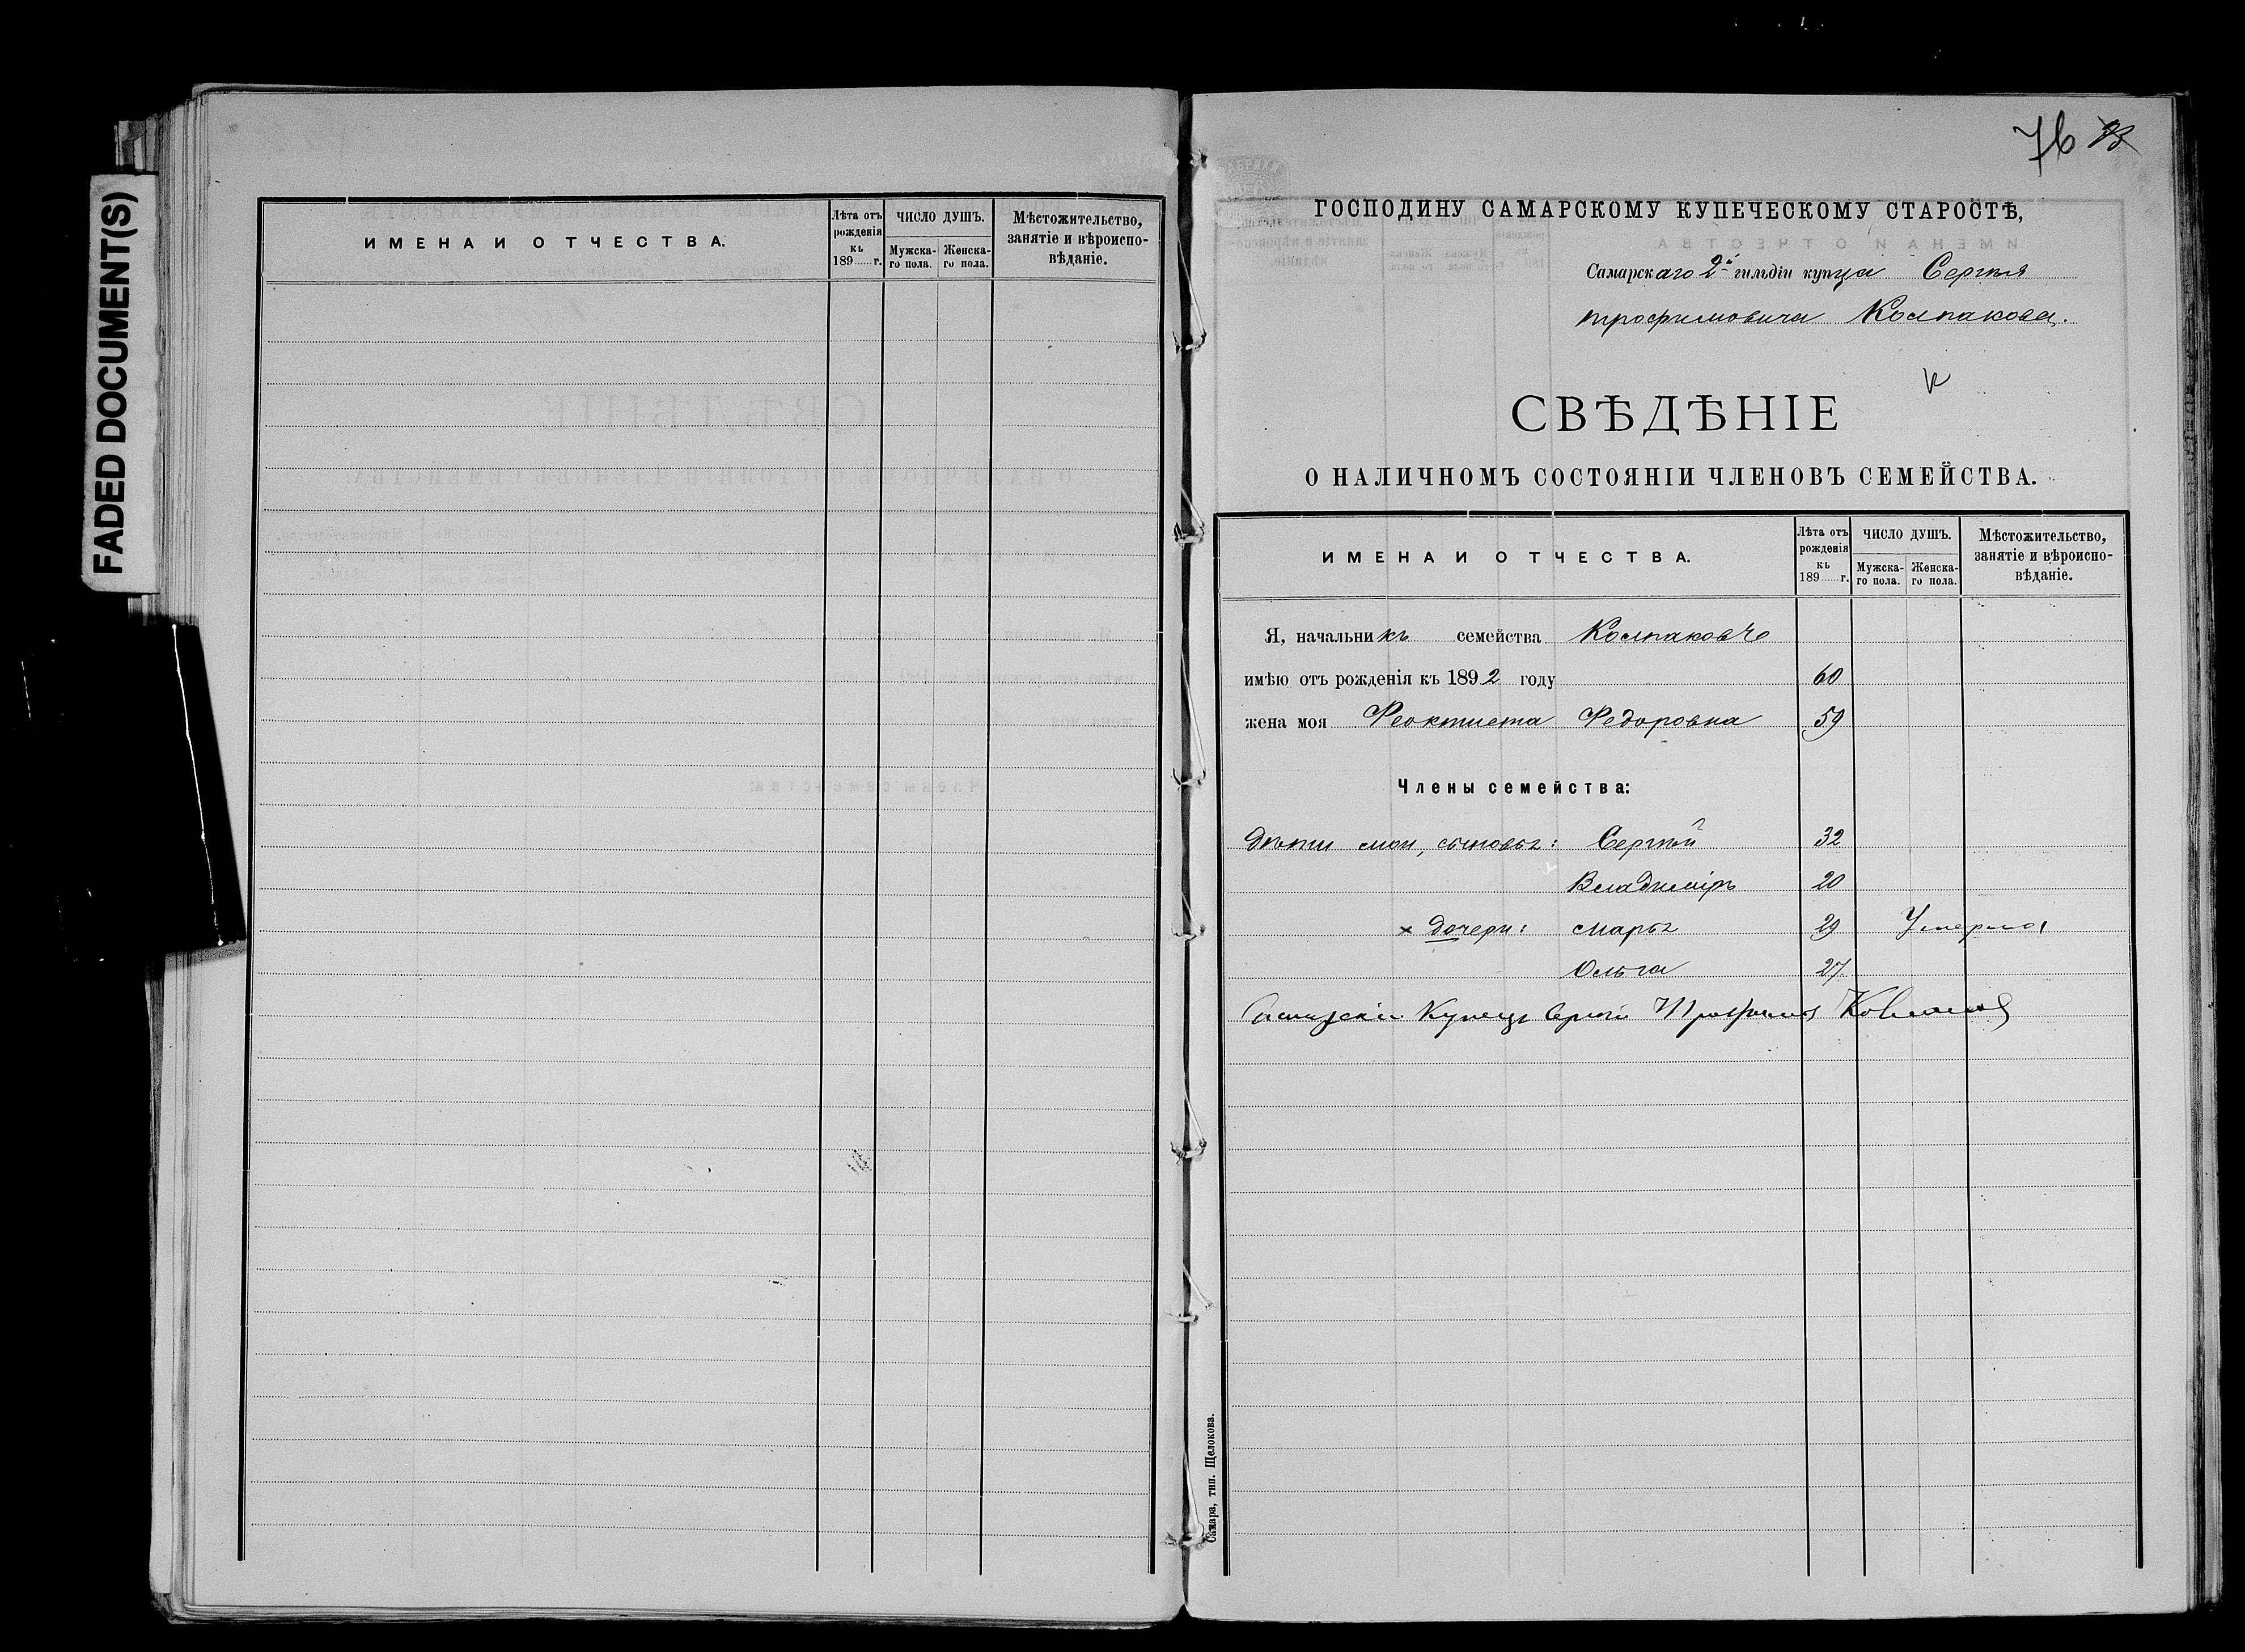 FADED DOCUMENT(S)
ИМЕНА И ОТЧЕСТВА.
Лѣта отъ рожденія къ 189 г.
ЧИСЛО ДУШЪ.
Мужска-го пола.
Женска-го пола.
Мѣстожительство, занятіе и вѣроиспо-вѣданіе.
76
ГОСПОДИНУ САМАРСКОМУ КУПЕЧЕСКОМУ СТАРОСТѢ,
Самарскаго 2й гильдіи купца Сергѣя
Трофимовича Колпакова.
СВѢДѢНІЕ
О НАЛИЧНОМЪ СОСТОЯНІИ ЧЛЕНОВЪ СЕМЕЙСТВА.
ИМЕНА И ОТЧЕСТВА.
Лѣта отъ рожденія къ 189 г.
ЧИСЛО ДУШЪ.
Мужска-го пола.
Женска-го пола.
Мѣстожительство, занятіе и вѣроиспо-вѣданіе.
Я, начальникъ семейства Колпаковъ
имѣю отъ рожденія къ 1892 году 60
жена моя Феоктиста Федоровна 59
Члены семейства:
Дѣти мои, сыновья: Сергѣй 32
Владиміръ 20
× дочери: Марья 29 Умерла
Ольга 27
Самарскій Купецъ Сергѣй Трофимовъ Колпаковъ
Самара, тип. Щелокова.